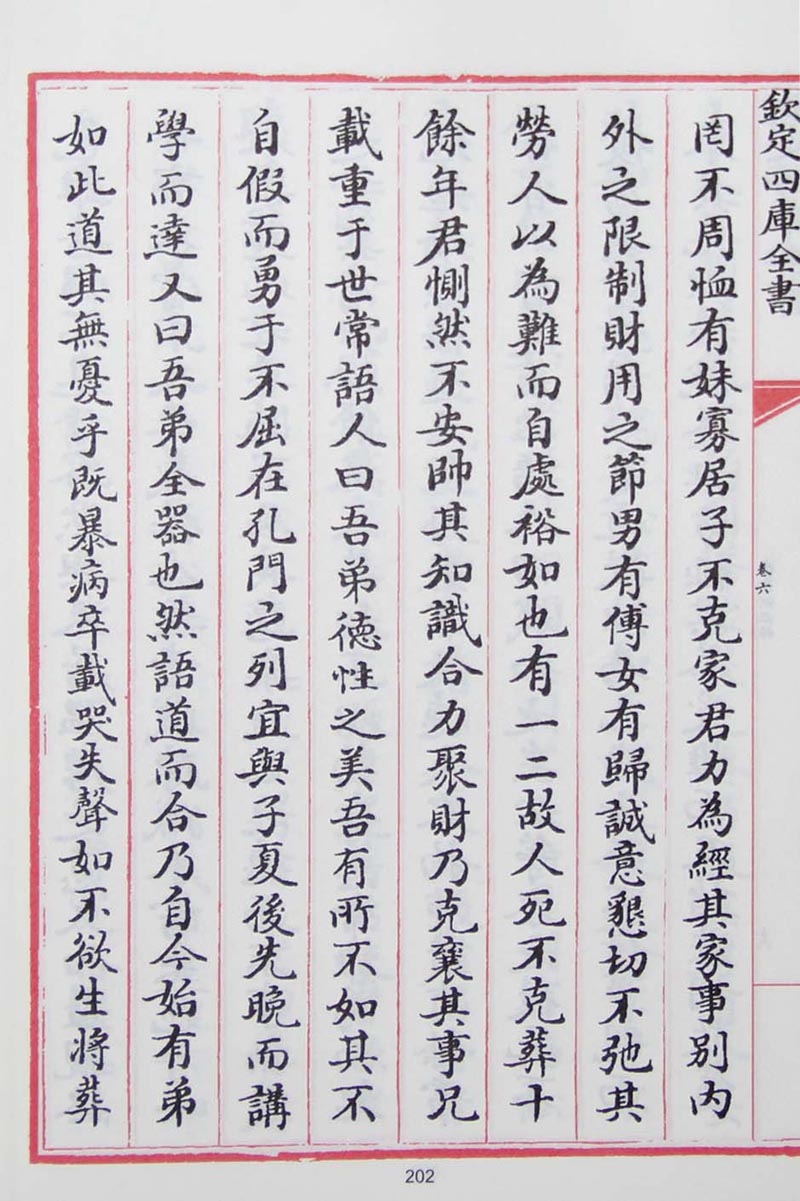 欽定四庫全書
卷六
罔不周恤有妹寡居子不克家君力為經其家事別内
外之限制財用之節男有傅女有歸誠意懇切不弛其
勞人以為難而自處裕如也有一二故人死不克葬十
餘年君惻然不安帥其知識合力聚財乃克襄其事兄
載重于世常語人曰吾弟德性之美吾有所不如其不
自假而勇于不屈在孔門之列宜與子夏後先晚而講
學而達又曰吾弟全器也然語道而合乃自今始有弟
如此道其無憂乎既暴病卒載哭失聲如不欲生將葬
202